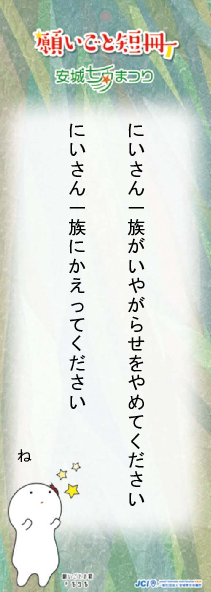 願いごと短冊
安城七夕まつり
にいさん一族がいやがらせをやめてください
にいさん一族にかえってください
ね
JCI